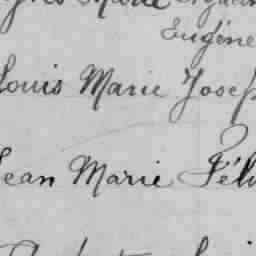 Marie
Eugène
Louis Marie Josep
Jean Marie Féli